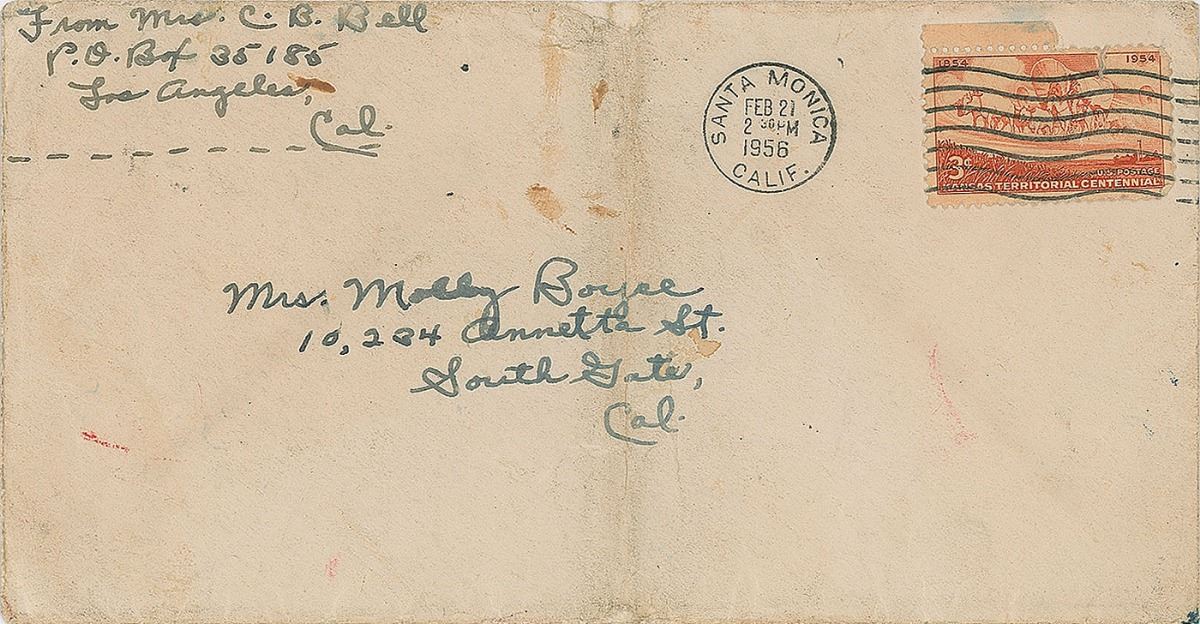 From Mrs. C. B. Bell
P.O. Box 35185
Los Angeles,
Cal.
SANTA MONICA
FEB 21
2 30 PM
1956
CALIF.
1954 1954
3¢ U.S. POSTAGE
KANSAS TERRITORIAL CENTENNIAL
Mrs. Molly Boyce
10,234 Annetta St.
South Gate,
Cal.